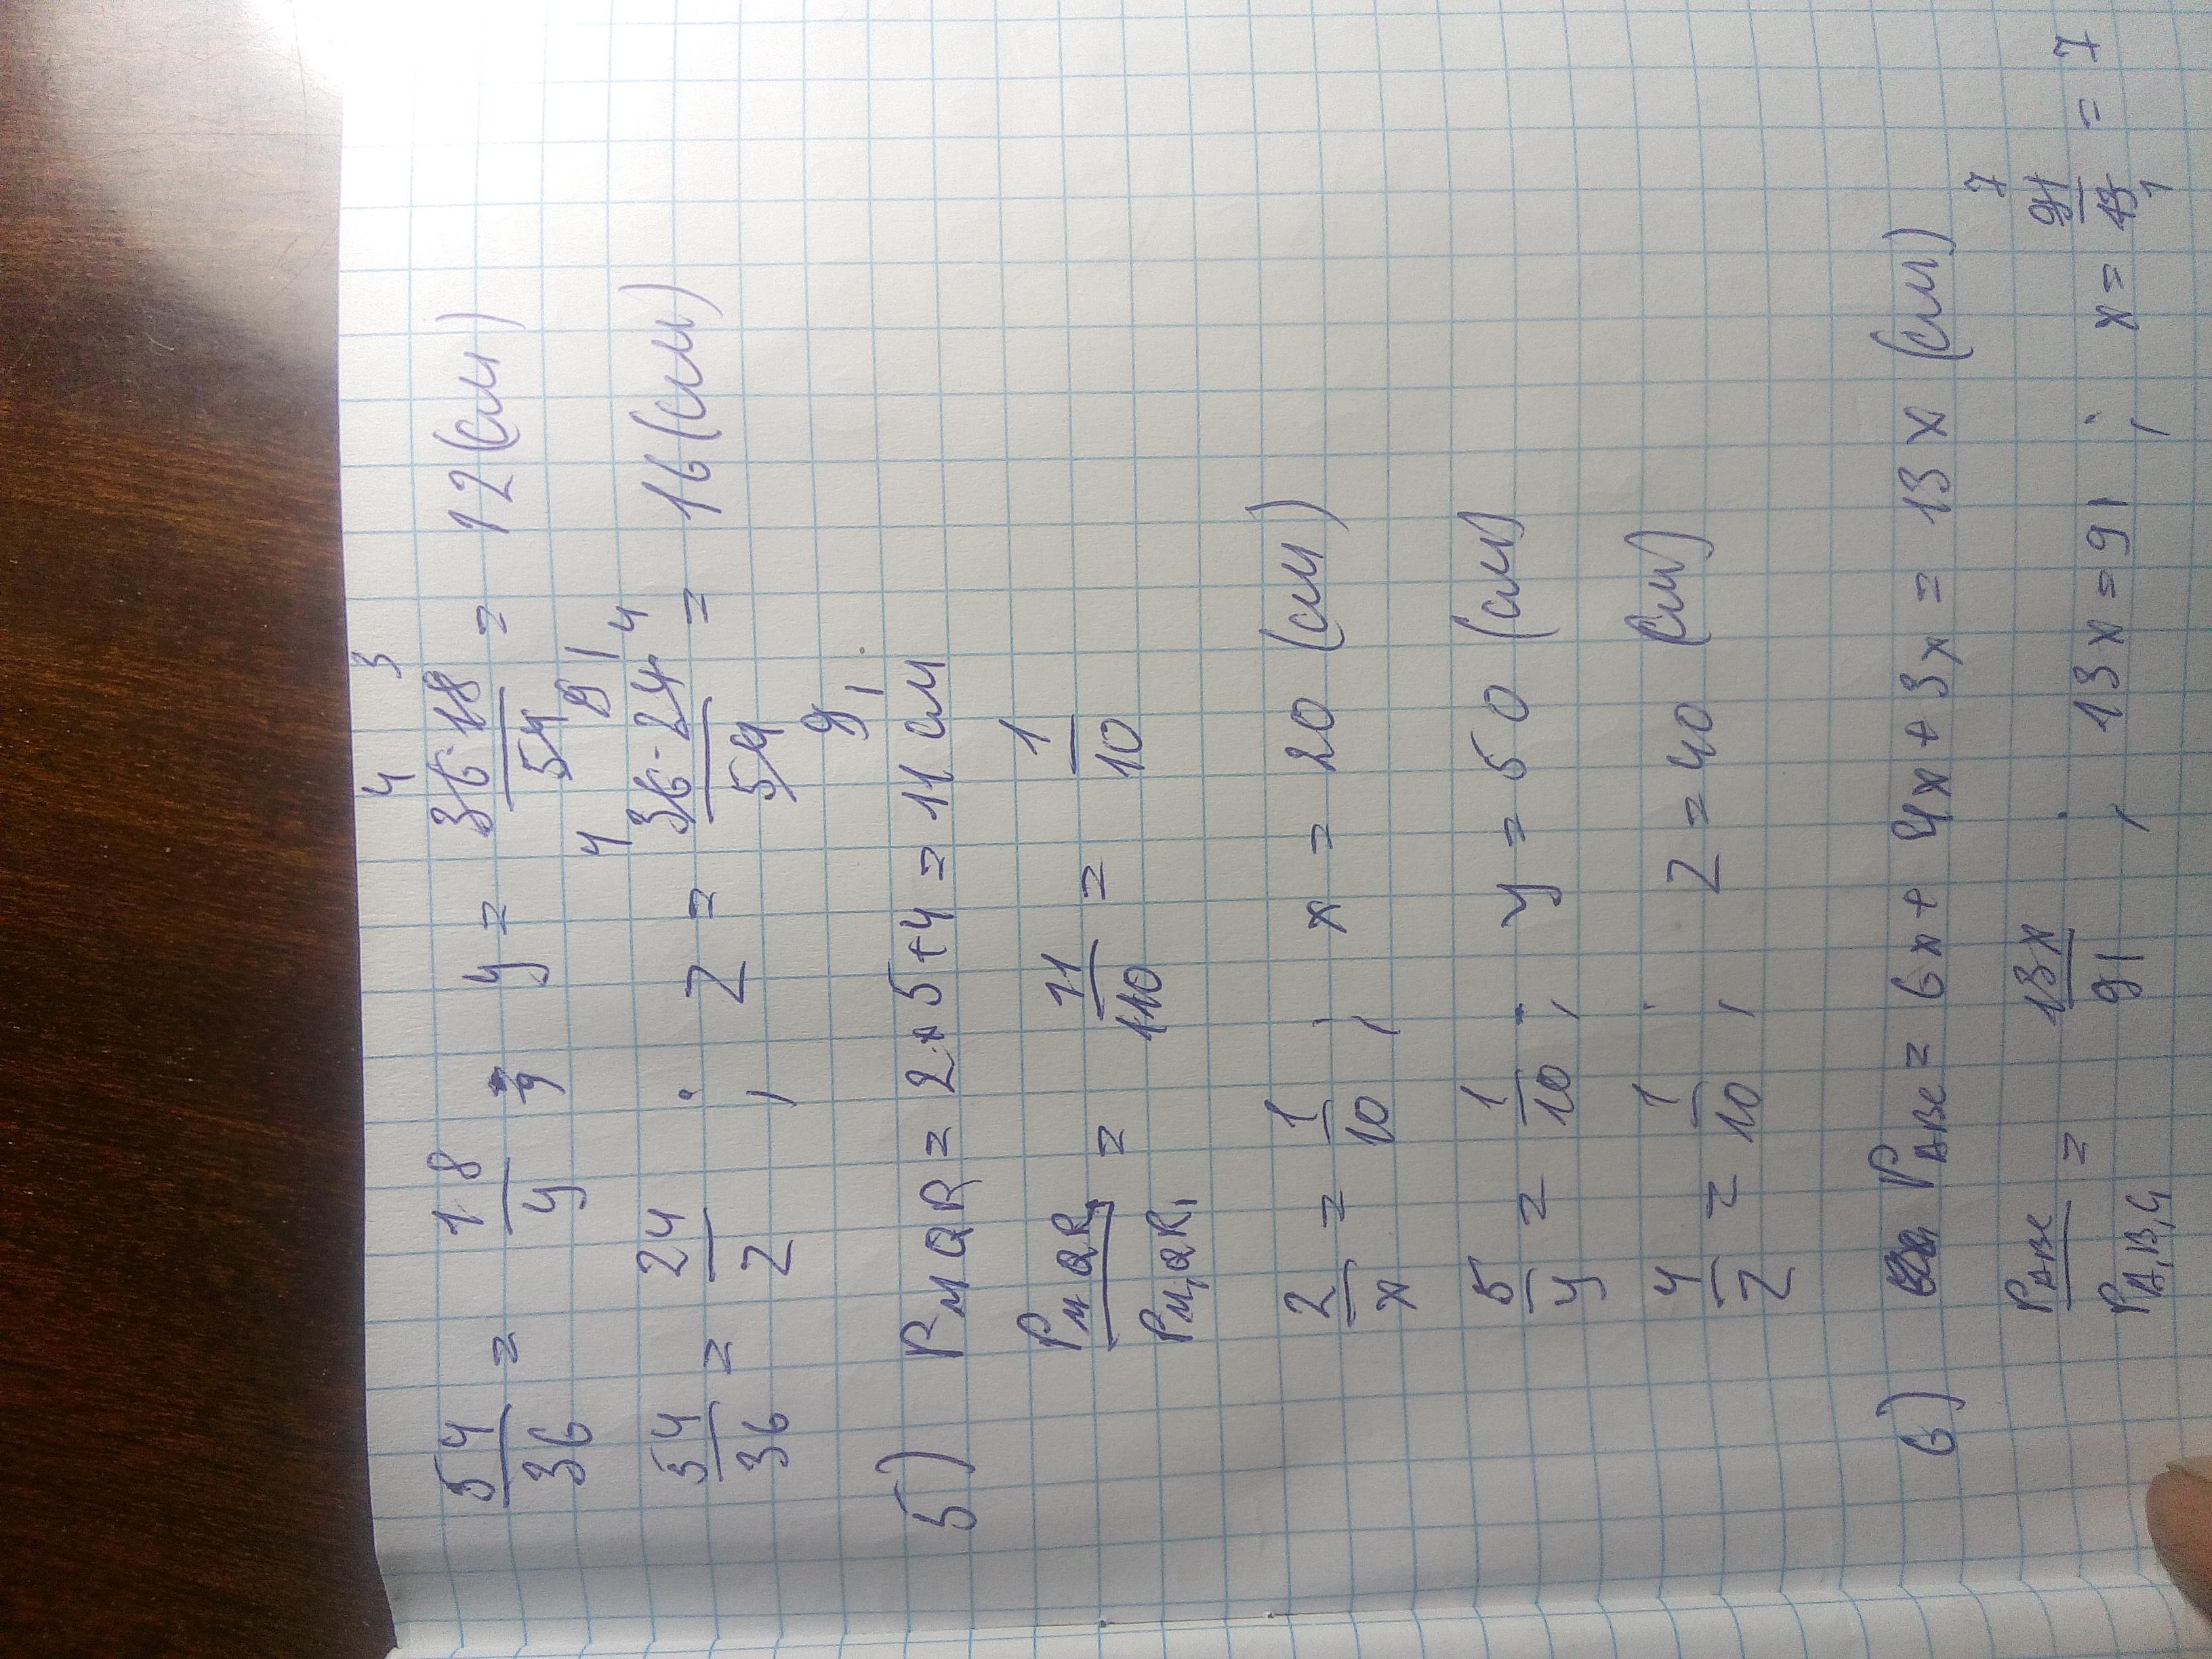 54/36 = 18/y ; y = 36·18/54 = 12 (см)
54/36 = 24/z ; z = 36·24/54 = 16 (см)
5) PMQR = 2+5+4 = 11 см
PMQR/PM₁QR₁ = 11/110 = 1/10
2/x = 1/10 ; x = 20 (см)
5/y = 1/10 ; y = 50 (см)
4/z = 1/10 ; z = 40 (см)
6) PABC = 6x + 4x + 3x = 13x (см)
PABC/PA₁B₁C₁ = 13x/91 ; 13x = 91 ; x = 91/13 = 7